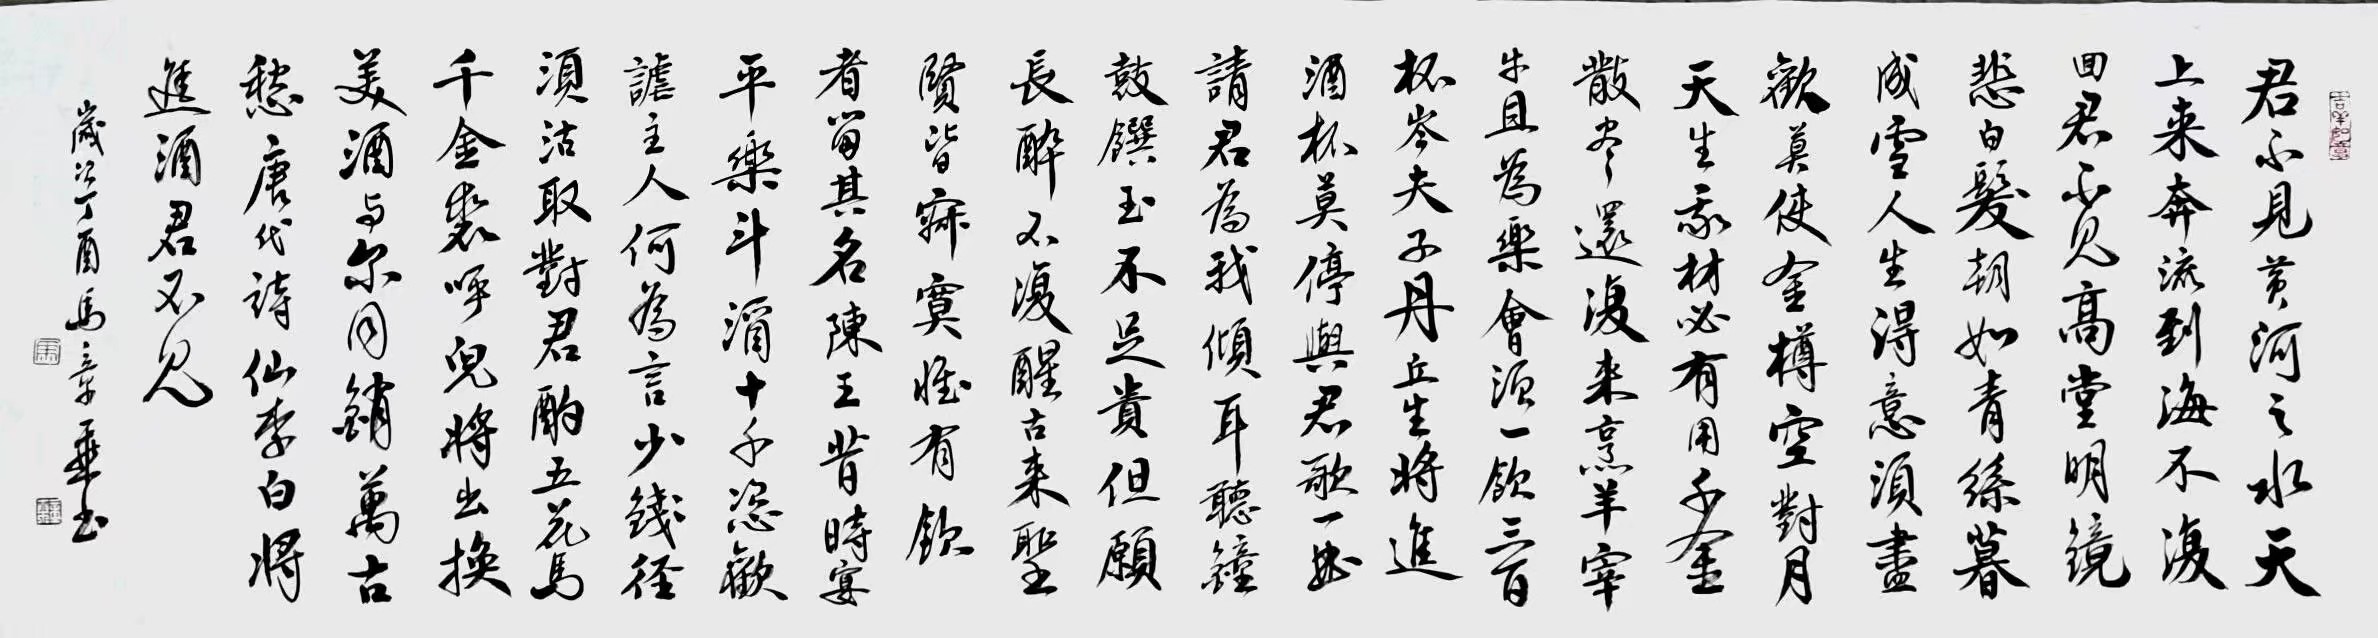 吉祥如意
君不見黄河之水天
上来奔流到海不復
回君不見高堂明鏡
悲白髮朝如青絲暮
成雪人生得意須盡
歡莫使金樽空對月
天生我材必有用千金
散尽還復来烹羊宰
牛且為樂會須一飲三百
杯岑夫子丹丘生將進
酒杯莫停與君歌一曲
請君為我傾耳聽鐘
鼓饌玉不足貴但願
長醉不復醒古来聖
賢皆寂寞惟有飲
者留其名陳王昔時宴
平樂斗酒十千恣歡
謔主人何為言少錢径
須沽取對君酌五花馬
千金裘呼兒將出换
美酒与尔同銷萬古
愁唐代詩仙李白將
進酒君不見
歲次丁酉馬章華书